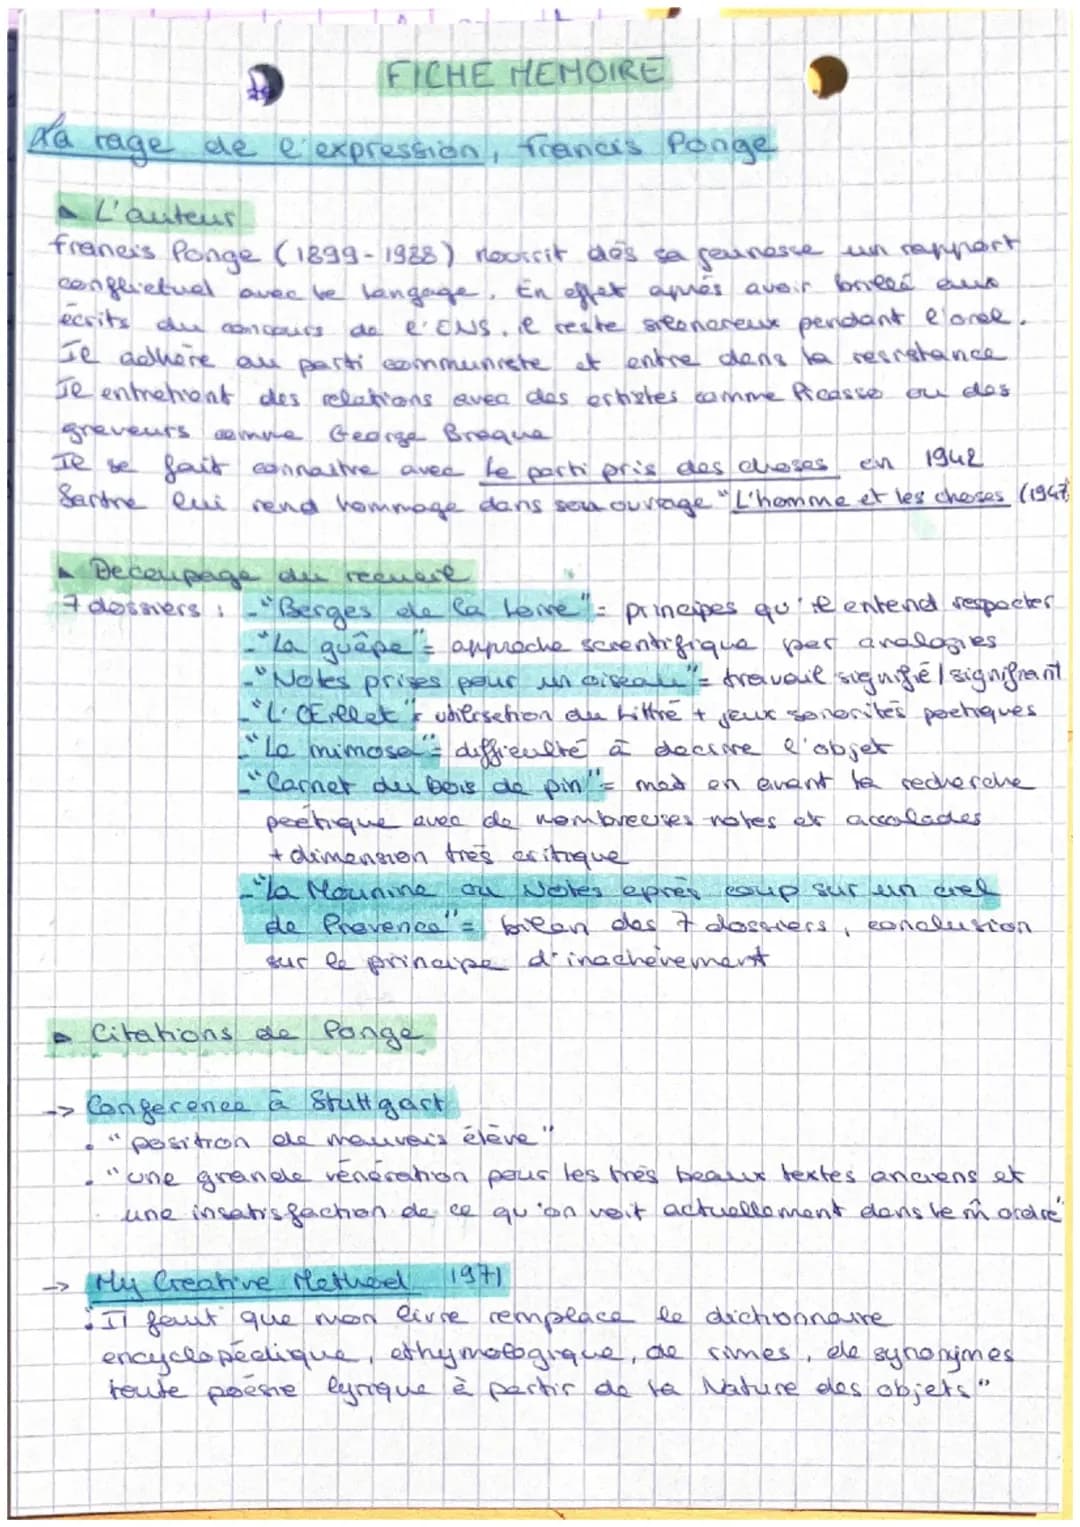 FICHE MEMOIRE
La rage de l'expression, Francis Ponge
L'auteur
Francis Ponge (1899-1988) nourrit dès sa jeunesse un rapport
conflictuel avec le langage. En effet après avoir brillé aux
écrits du concours de l'ENS, il reste silencieux pendant l'oral.
Il adhère au parti communiste et entre dans la resistance
Il entretient des relations avec des artistes comme Picasso ou des
graveurs comme George Braque
Il se fait connaitre avec Le parti pris des choses en 1942
Sartre lui rend hommage dans son ouvrage "L'homme et les choses (1947)
Decoupage du recueil
7 dossiers : - "Berges de la Loire" = principes qu'il entend respecter
- "La guêpe" = approche scientifique par analogies
- "Notes prises pour un oiseau" = travail signifié / signifiant
- "L'Œillet" = utilisation du Littré + jeux sonorités poetiques
- "Le mimosa" = difficulté à decrire l'objet
- "Carnet du bois de pin" = met en avant la recherche
poétique avec de nombreuses notes et accolades
+ dimension très critique
- "La Mounine ou Notes après coup sur un ciel
de Provence" = bilan des 7 dossiers, conclusion
sur le principe d'inachèvement
Citations de Ponge
-> Conference à Stuttgart
. "position de mauvais élève"
. "une grande vénération pour les très beaux textes anciens et
une insatisfaction de ce qu'on voit actuellement dans le m̂ ordre"
-> My Creative Method 1971
. "Il faut que mon livre remplace le dictionnaire
encyclopédique, ethymologique, de rimes, de synonymes
toute poésie lyrique à partir de la Nature des objets"